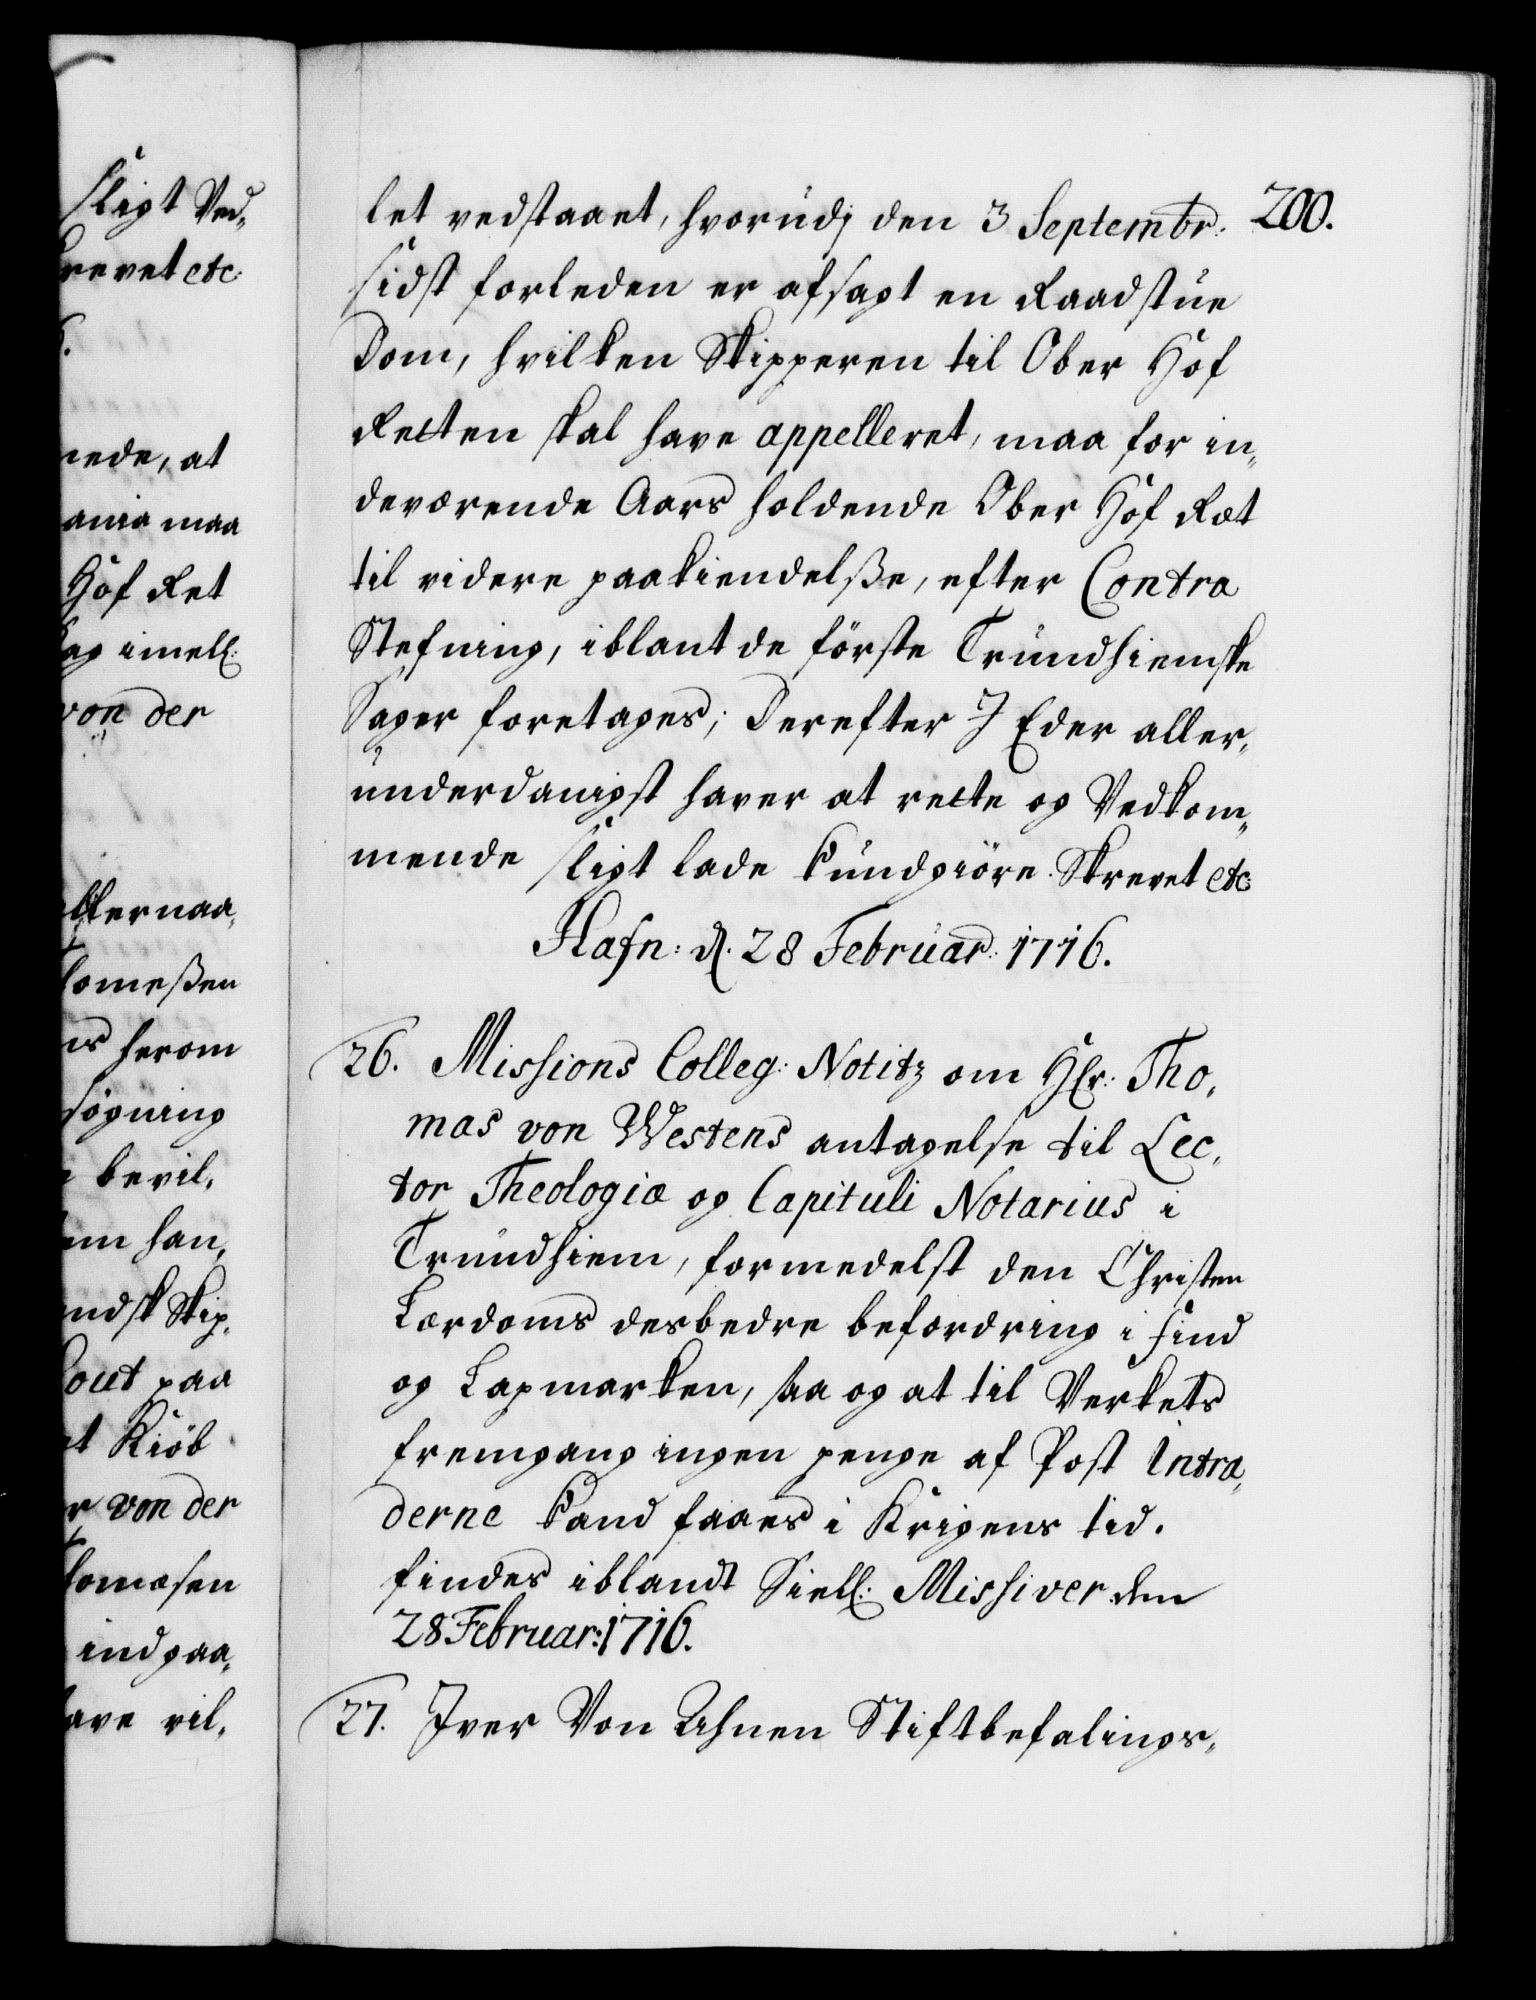 sligt Ved„
krevet etc:
nede, at
ania maa
Hof Ret
Sag imell:
von der
lomeßen
herom
søgning
bevil„
han„
ndsk Skip„
paa
at Kiöb
von der
lomesen
indgaa„
have vil„
200.
let vedstaaet, hvorudj den 3 Septembr:
sidst forleden er afsagt en Raadstue
Dom, hvilken Skipperen til Ober Hof
Retten skal have appelleret, maa for in„
deværende Aars holdende Ober Hof Ræt
til videre paakiendelße, efter Contra
Stefning, iblant de förste Trundhiemske
Sager foretages; Derefter I Eder aller„
underdanigst haver at rette og Vedkom„
mende sligt lade kundgiöre. Skrevet etc:
Hafn: d. 28 Februar: 1716.
26. Missions Colleg: Notitz om Hr: Tho„
mas von Westens antagelse til Lec„
tor Theologiæ og Capituli Notarius i
Trundhiem, formedelst den Christen
Lærdoms desbedre befordring i Find
og Lapmarken, saa og at til Verkets
fremgang ingen penge af Post Intra„
derne kand faaes i Krigens tid.
findes iblandt Siell: Missiver den
28 Februar: 1716.
27. Iver Von Ahnen Stiftbefalings„